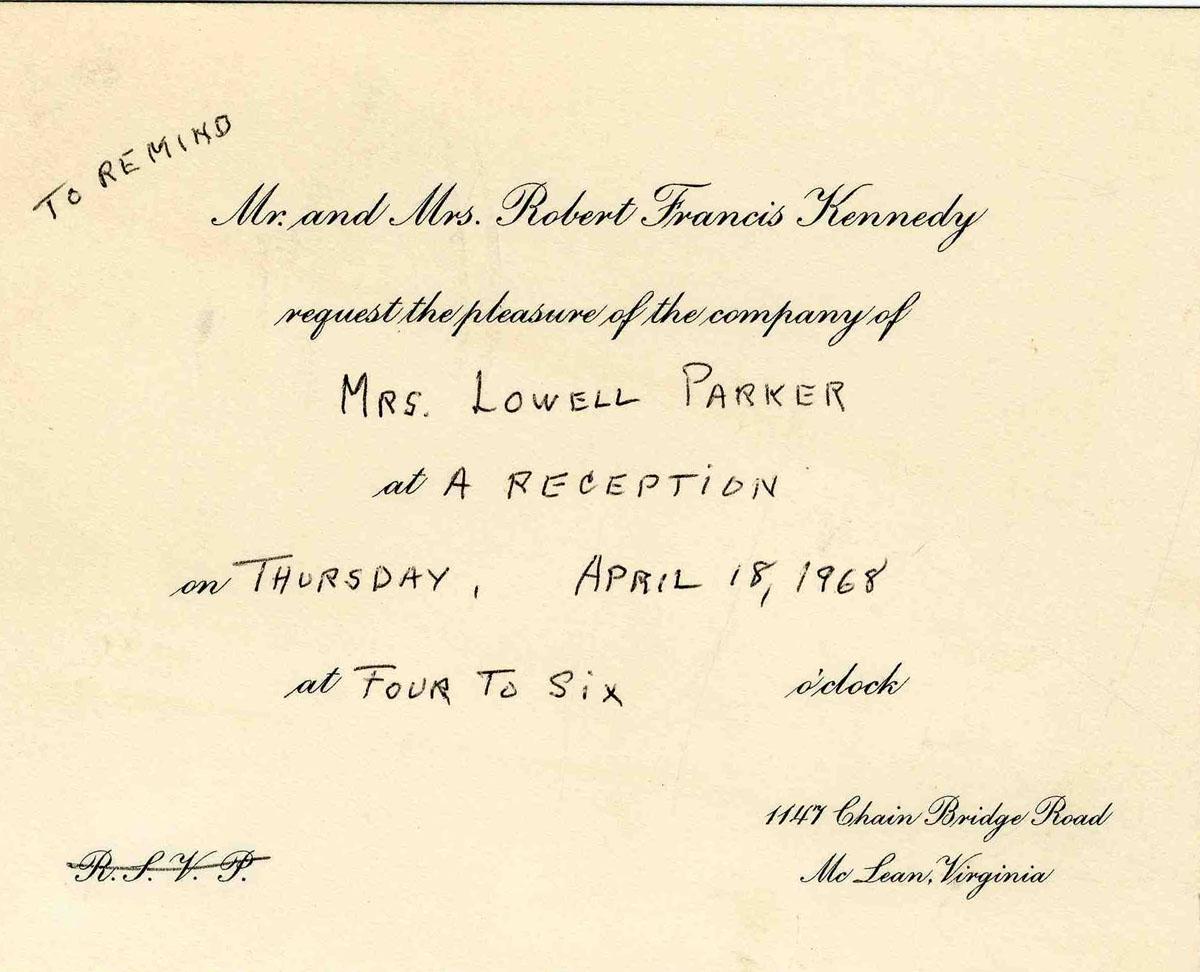 TO REMIND
Mr. and Mrs. Robert Francis Kennedy
request the pleasure of the company of
MRS. LOWELL PARKER
at A RECEPTION
on THURSDAY, APRIL 18, 1968
at FOUR TO SIX o'clock
1147 Chain Bridge Road
R. S. V. P.
Mc Lean, Virginia